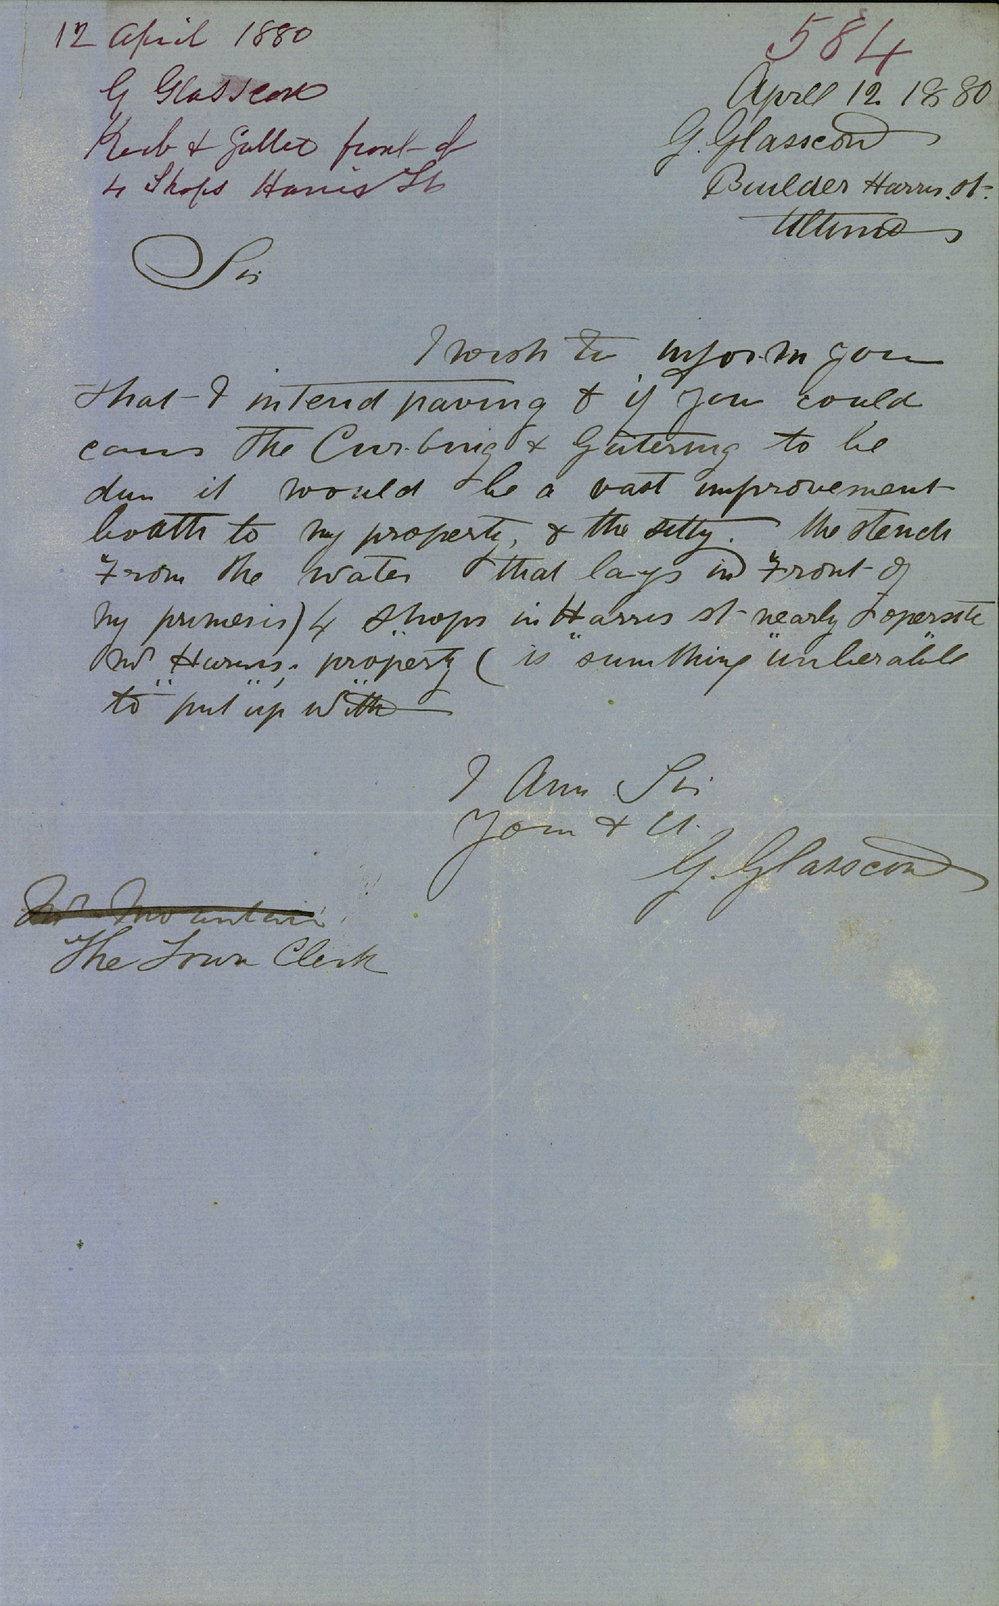 12 April 1880
G Glasscock
Kerb & Gutter front of
4 Shops Harris St
584
April 12. 1880
G. Glasscock
Builder Harris. st.
Ultimo
Sir
I wish to inform you
that I intend paving & if you could
caus the Curbing & Gutering to be
dun it would be a vast improvement
boath to my property, & the sitty. the stench
From the water that lays in Front of
my primesis) 4 shops in Harris st nearly opersite
Mr Harris. property ( is "sumthing "unberable
to "put" up with
I Am Sir
Your & Ct.
G. Glasscock
Mr Mountain
The Town Clerk